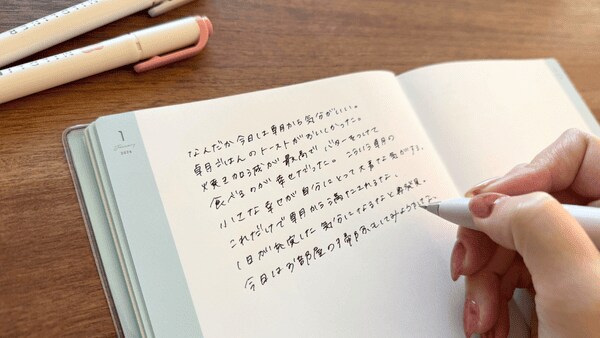 1
January
なんだか今日は朝から気分がいい。
朝ごはんのトーストがおいしかった。
焼き加減が最高で バターをつけて
食べるのが幸せだった。こういう朝の
小さな幸せが自分にとって大事な気がする。
これだけで朝から満たされるな。
1日が充実した気分になるなと再発見。
今日はお部屋の掃除をしてみよう